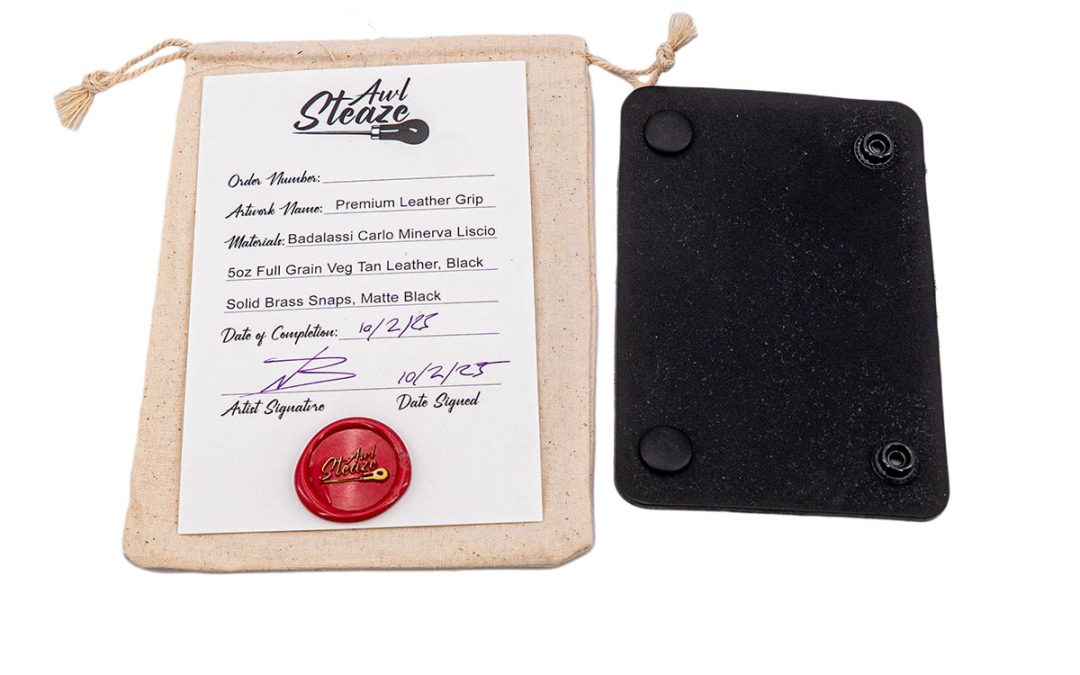 Awl
Steaze
Order Number:
Artwork Name: Premium Leather Grip
Materials: Badalassi Carlo Minerva Liscio
5oz Full Grain Veg Tan Leather, Black
Solid Brass Snaps, Matte Black
Date of Completion: 10/2/25
10/2/25
Artist Signature Date Signed
Awl
Steaze